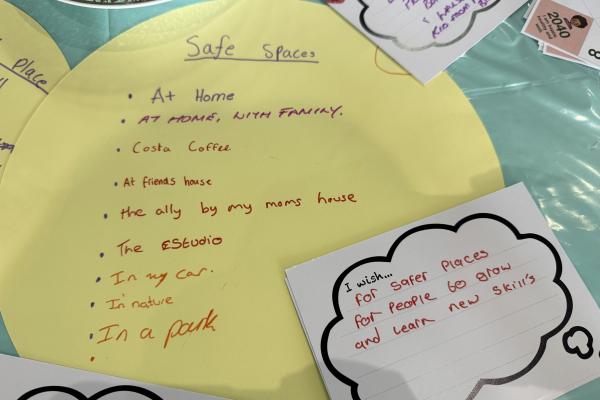 Safe Spaces
• At Home
• AT HOME, WITH FAMILY.
• Costa Coffee
• At friends house
• the ally by my moms house
• The EStudio
• In my car.
• In nature
• In a park
Place
I wish...
for safer places
for people to grow
and learn new skill's
2040